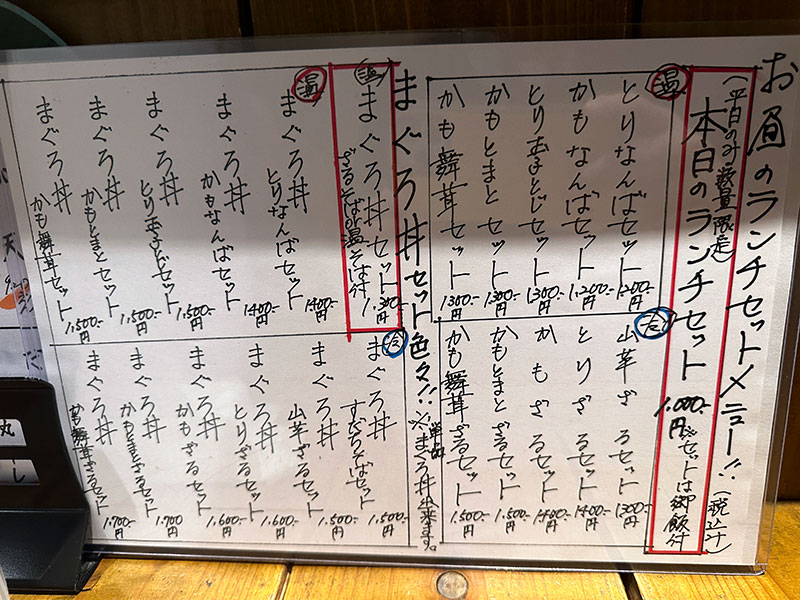 お昼のランチセットメニュー!!(税込み)
(平日のみ数量限定)
本日のランチセット 1,000-円
※セットは御飯付
温
とりなんばセット 1200-円
かもなんばセット 1,200-円
とり玉子とじセット 1300-円
かもとまとセット 1300-円
かも舞茸セット 1300-円
冷
山芋ざるセット 1300-円
とりざるセット 1400-円
かもざるセット 1400-円
かもとまとざるセット 1,500-円
かも舞茸ざるセット 1,500-円
まぐろ丼セット色々!!※まぐろ丼単品出来ます。
温
まぐろ丼セット 1,300-円
ざるそばor温そば付
温
まぐろ丼とりなんばセット 1400-円
まぐろ丼かもなんばセット 1400-円
まぐろ丼とり玉子とじセット 1,500-円
まぐろ丼かもとまとセット 1,500-円
まぐろ丼かも舞茸セット 1,500-円
冷
まぐろ丼すだちそばセット 1,500-円
まぐろ丼山芋ざるセット 1,500-円
まぐろ丼とりざるセット 1,600-円
まぐろ丼かもざるセット 1,600-円
まぐろ丼かもとまとざるセット 1,700円
まぐろ丼かも舞茸ざるセット 1,700-円
天
丸
し